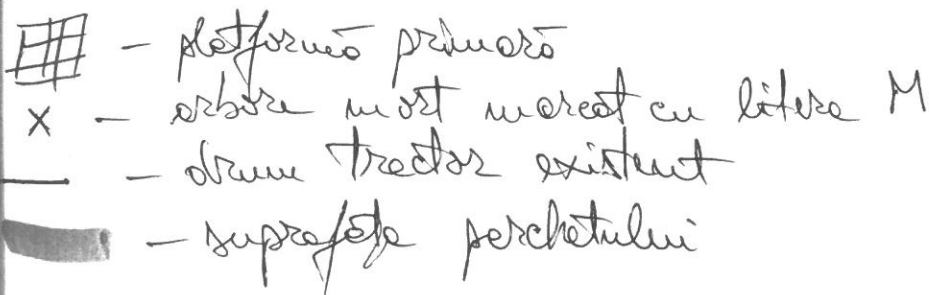 - platformă primară
x - arbore mort marcat cu litera M
- drum tractor existent
- suprafața parchetului